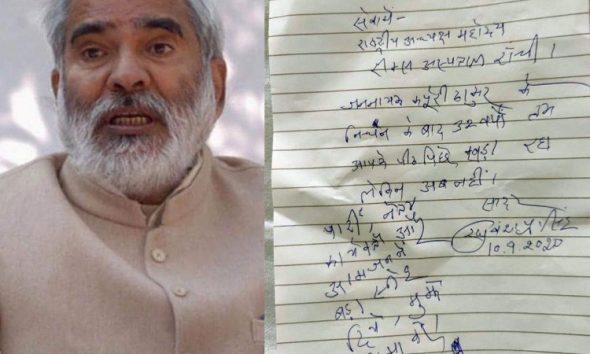 सेवामें-
राष्ट्रीय अध्यक्ष महोदय
रिम्स अस्पताल राँची।
जननायक कर्पूरी ठाकुर के
निधन के बाद 32 वर्षों तक
आपके पीछे पीछे खड़ा रहा
लेकिन अब नहीं।
पार्टी, नेता
कार्यकर्ता
आमजन ने
बड़ा स्नेह
दिया, मुझे
सादर
10.9.2020